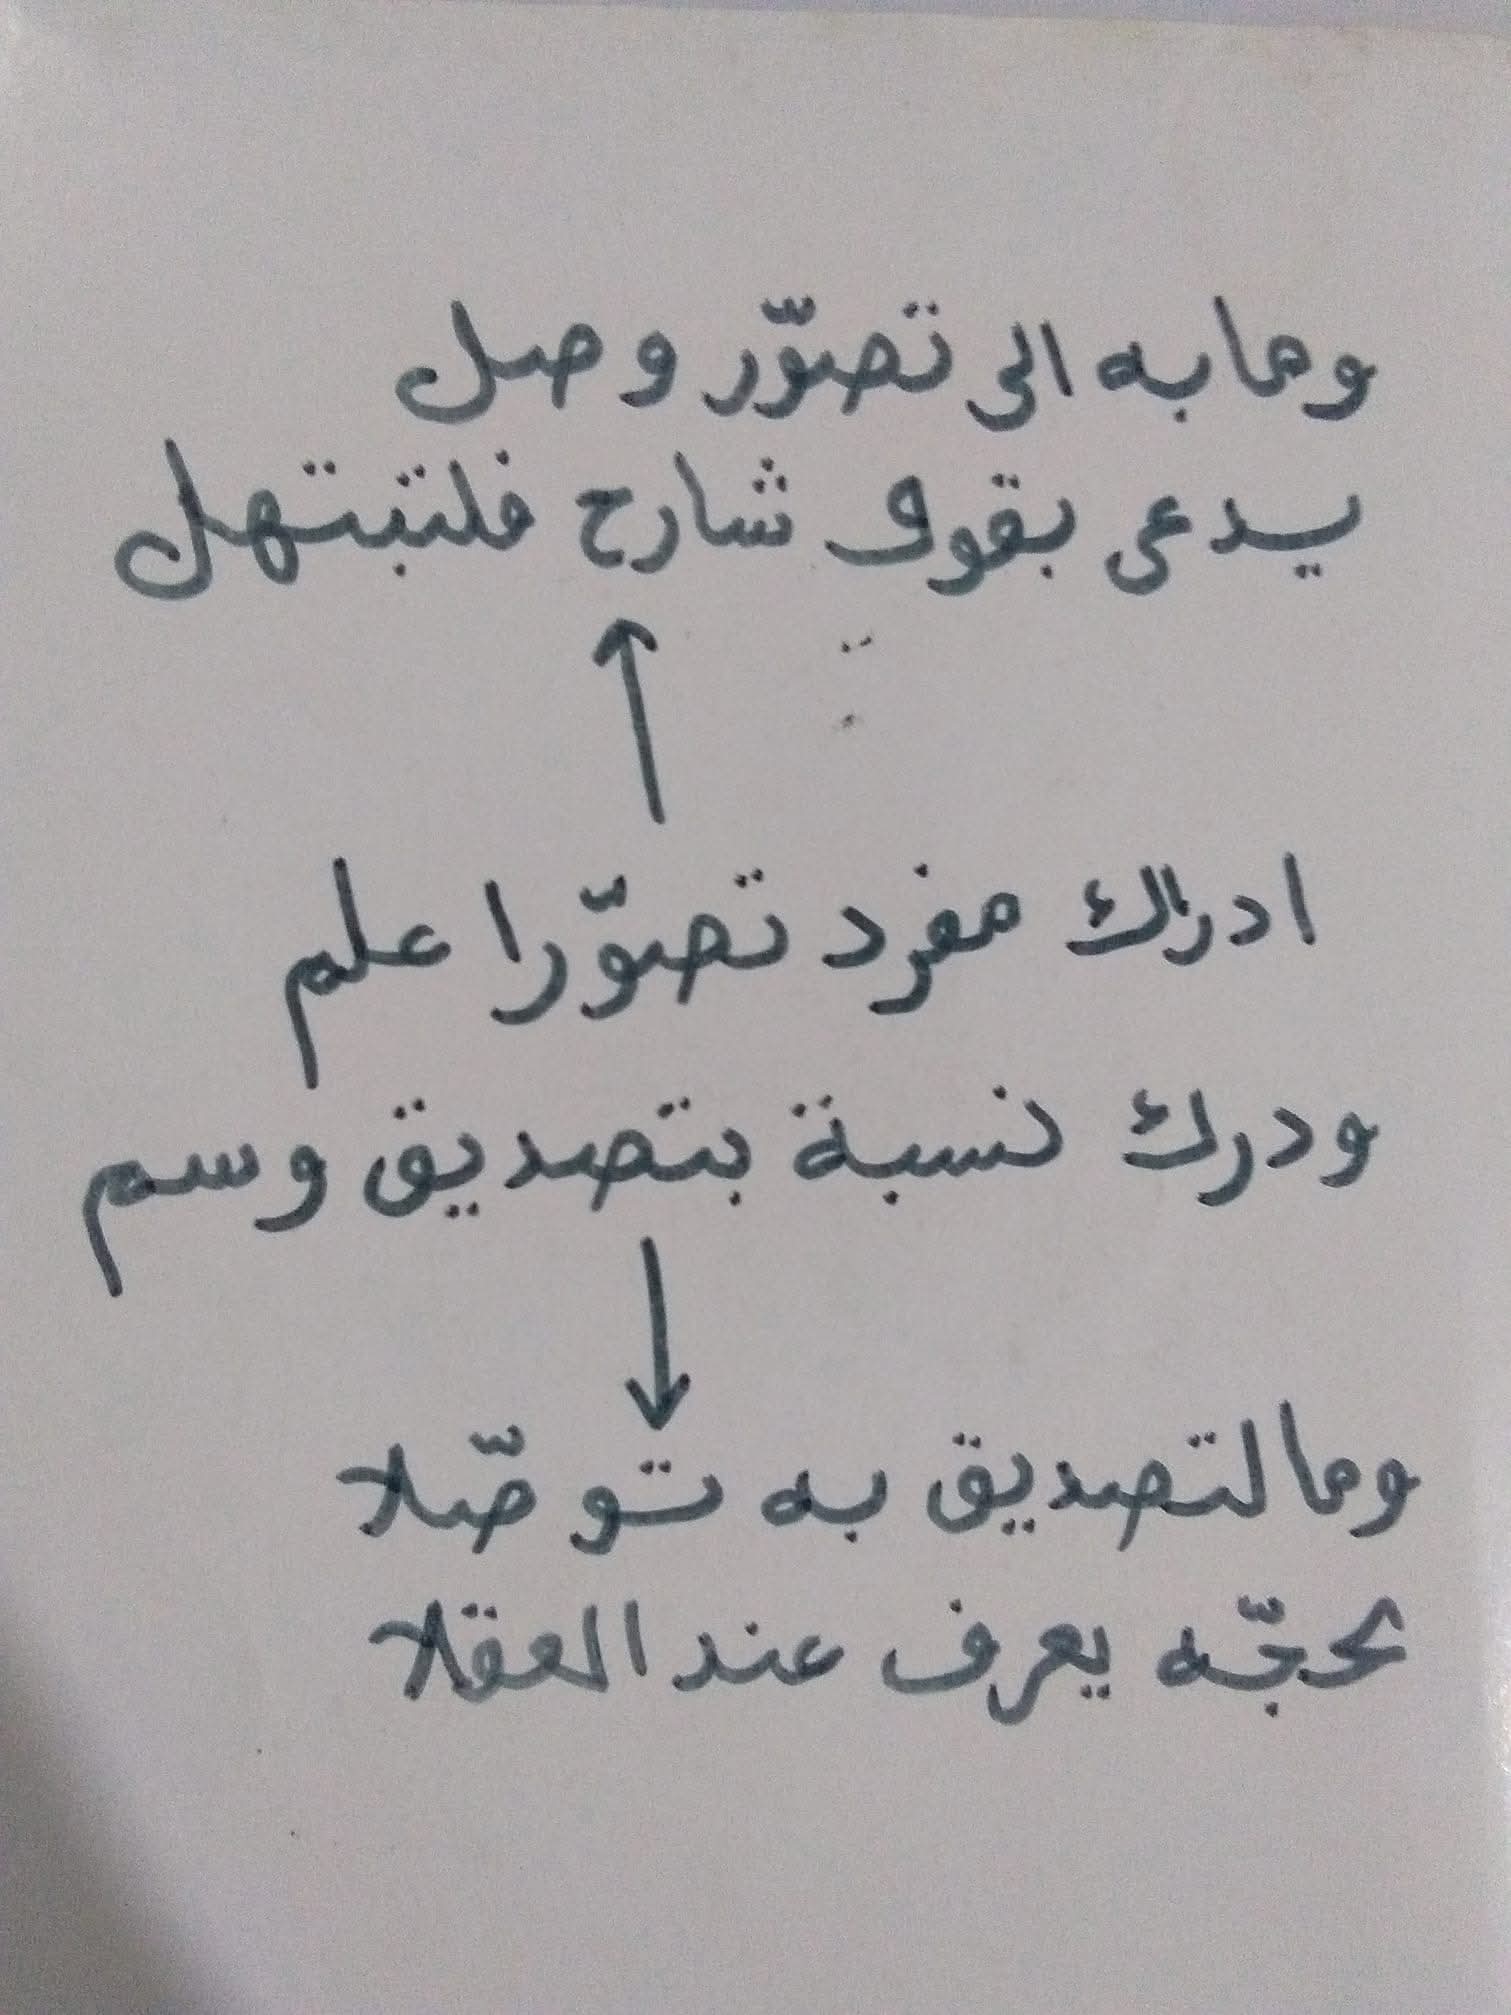 وما به الى تصوّر وصل
يدعى بقول شارح فلتبتهل
ادراك مفرد تصوّرا علم
ودرك نسبة بتصديق وسم
وما لتصديق به توصّلا
بحجّه يعرف عند العقلا